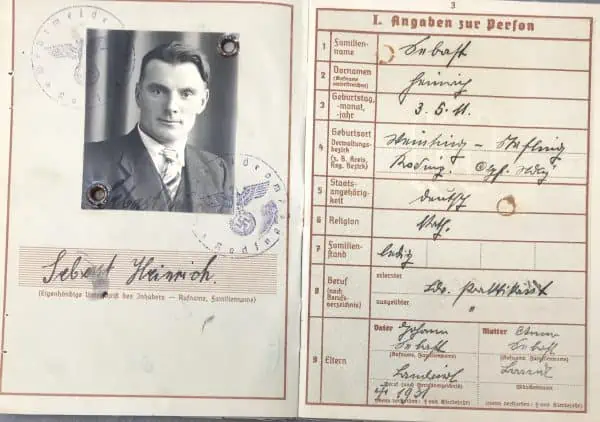 Sebast Heinrich.
(Eigenhändige Unterschrift des Inhabers — Rufname, Familienname)
3
I. Angaben zur Person
1 Familien-
name
Sebast
2 Vornamen
(Rufname
unterstreichen)
Heinrich
3 Geburtstag,
-monat,
-jahr
3. 5. 11.
4 Geburtsort
Verwaltungs-
bezirk
(z. B. Kreis,
Reg. Bezirk)
Roding.
5 Staats-
angehörig-
keit
deutsch
6 Religion
kath.
7 Familien-
stand
ledig
8 Beruf
(nach
Berufs-
verzeichnis)
erlernter
ausgeübter
Praktikant
"
9 Eltern
Vater Johann
Sebast
(Rufname, Familienname)
Landwirt
Beruf (nach Berufsverzeichnis)
1931
(wenn verstorben: † und Sterbejahr)
Mutter Anna
Sebast
(Rufname, Familienname)
Mädchenname
(wenn verstorben: † und Sterbejahr)